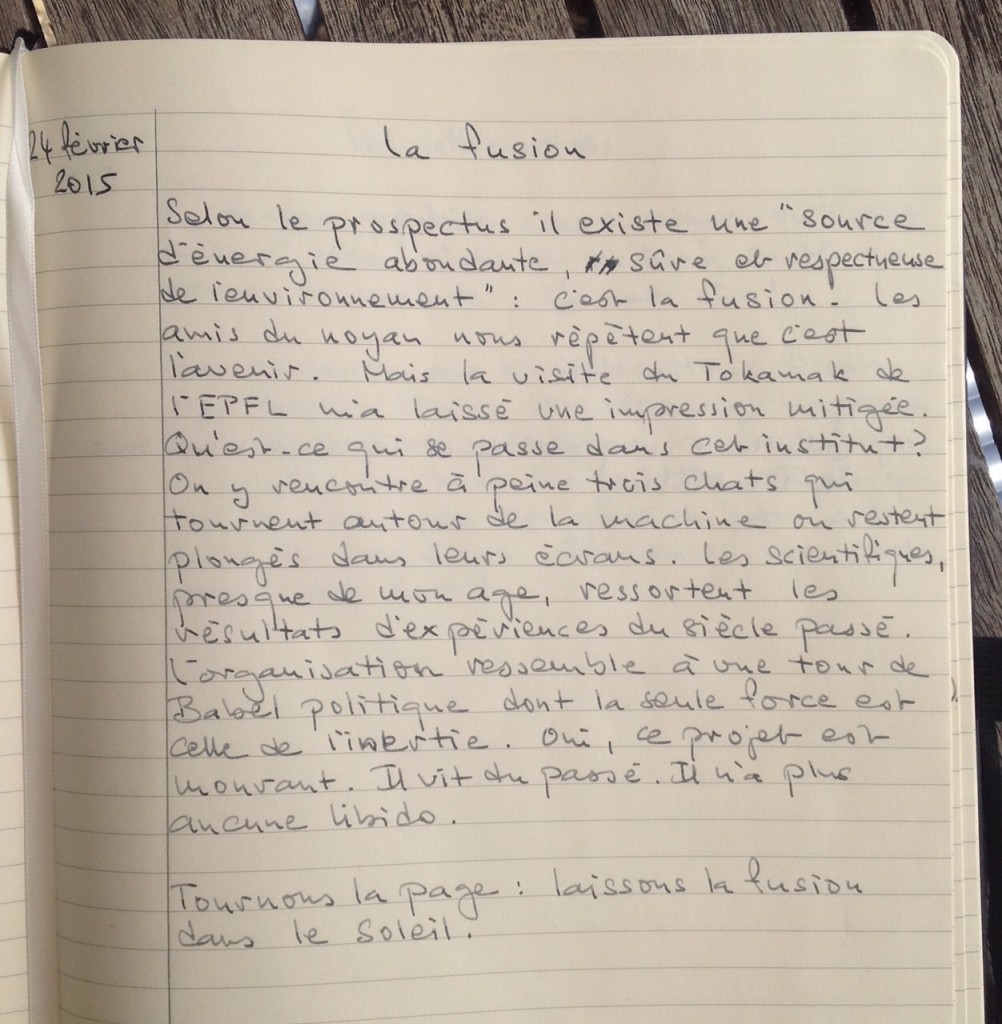 24 février
2015
La fusion
Selon le prospectus il existe une "source
d'énergie abondante, sûre et respectueuse
de l'environnement" : c'est la fusion. Les
amis du noyau nous répètent que c'est
l'avenir. Mais la visite du Tokamak de
l'EPFL m'a laissé une impression mitigée.
Qu'est-ce qui se passe dans cet institut?
On y rencontre à peine trois chats qui
tournent autour de la machine ou restent
plongés dans leurs écrans. Les scientifiques,
presque de mon age, ressortent les
résultats d'expériences du siècle passé.
L'organisation ressemble à une tour de
Babel politique dont la seule force est
celle de l'inertie. Oui, ce projet est
mourant. Il vit du passé. Il n'a plus
aucune libido.
Tournons la page : laissons la fusion
dans le soleil.